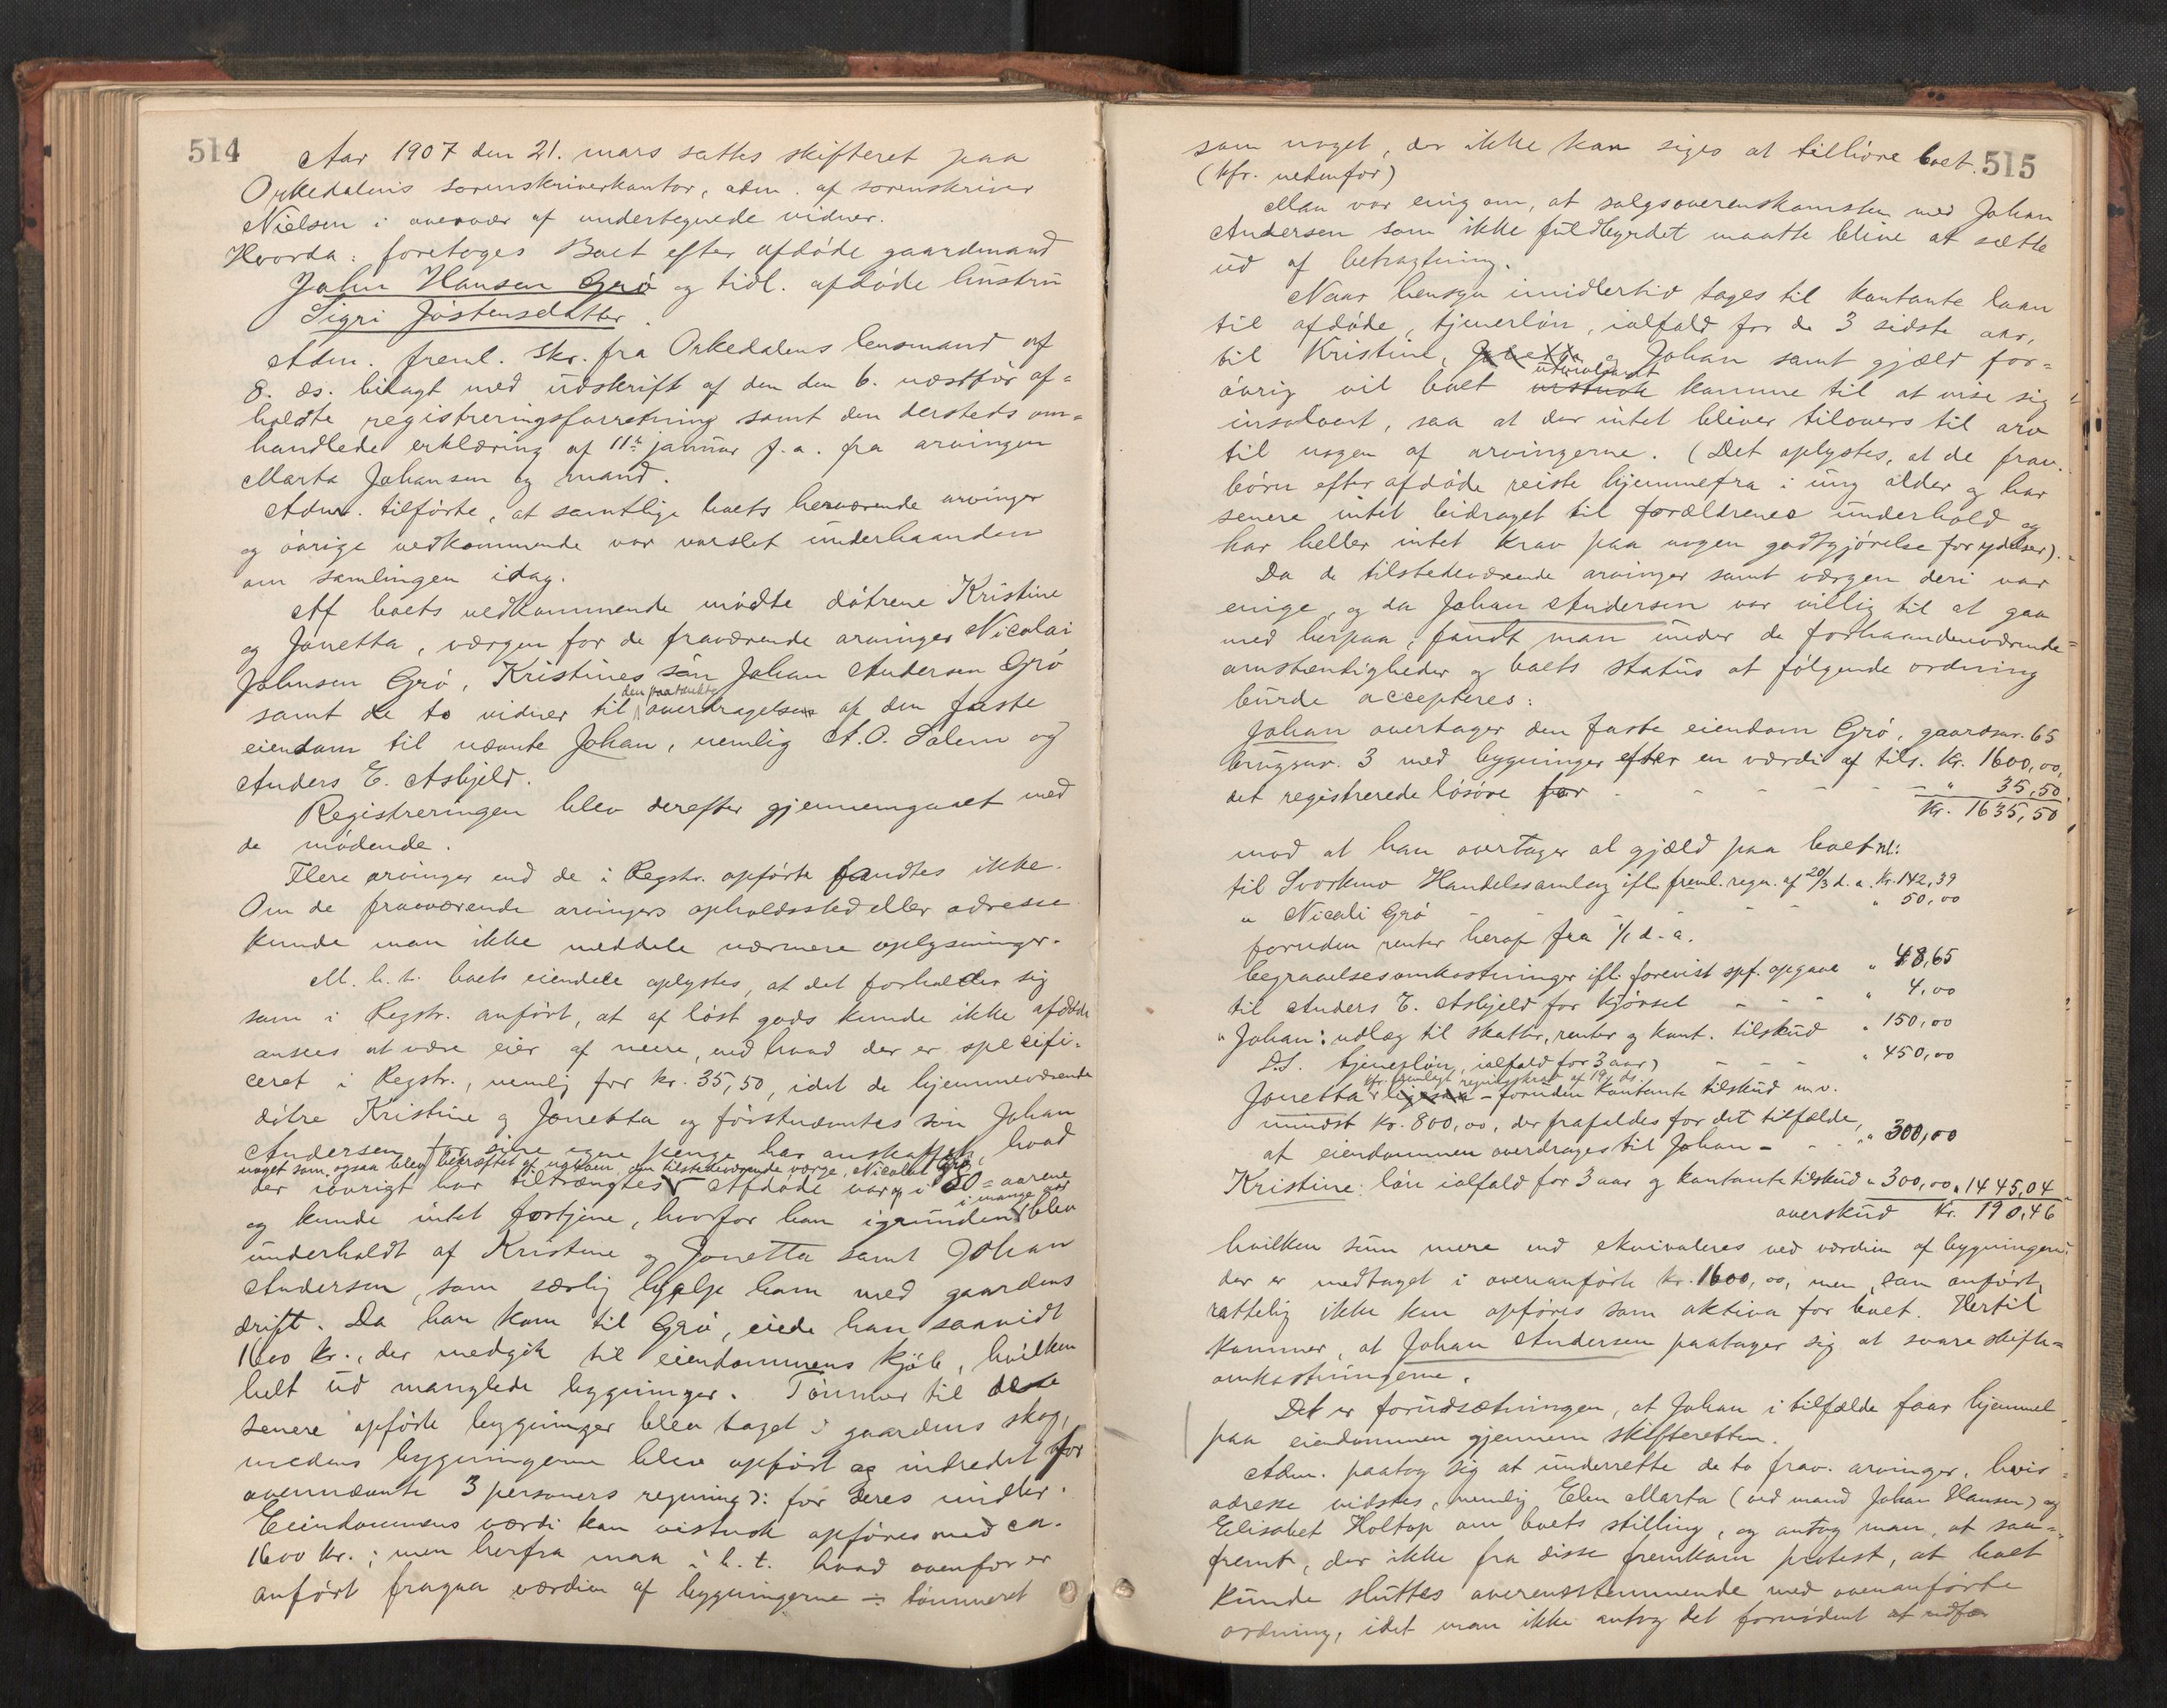 514
Aar 1907 den 21. mars sattes skifteret paa
Orkedalens sorenskriverkontor, adm. af sorenskriver
Nielsen i overvær af undertegnede vidner.
Hvorda: foretoges Boet efter afdøde gaardmand
John Hansen Grø og tidl. afdøde hustru
Sigri Jostensdatter.
Adm. freml. skr. fra Orkedalens lensmand af
8. ds. bilagt med udskrift af den den 6. næstfør af=
holdte registreringsforretning samt den dersteds om=
handlede erklæring af 11te januar f. a. fra arvingen
Marta Johansen og mand.
Adm. tilførte, at samtlige boets herværende arvinger
og øvrige vedkommende var varslet underhaanden
om samlingen idag.
Af boets vedkommende mødte døtrene Kristine
og Jonetta, værgen for de fraværende arvinger Nicolai
Johnsen Grø, Kristines søn Johan Andersen Grø
samt de to vidner til den paatænkte overdragelse af den faste
eiendom til nævnte Johan, nemlig A. O. Solem og
Anders E. Asbjeld.
Registreringen blev derefter gjennemgaaet med
de mødende.
Flere arvinger end de i Regstr. opførte fandtes ikke.
Om de fraværende arvingers opholdssted eller adresse
kunde man ikke meddele nærmere oplysninger.
M. h. t. boets eiendele oplystes, at det forholder sig
som i Regstr. anført, at af løst gods kunde ikke afdøde
ansees at være eier af mere, end hvad der er specifi=
ceret i Regstr., nemlig for kr. 35,50, idet de hjemmeværende
døtre Kristine og Jonetta og førstnævntes søn Johan
Andersen for sine egne penge har anskaffet, hvad
noget som ogsaa blev bekræftet af den tilstedeværende værge, Nicolai Grø
der iøvrigt har tiltrængtes. Afdøde var op i 80=aarene
og kunde intet fortjene, hvorfor han igrunden i mange aar blev
underholdt af Kristine og Jonetta samt Johan
Andersen, som særlig hjalp ham med gaardens
drift. Da han kom til Grø, eiede han saavidt
1600 kr., der medgik til eiendommens kjøb, hvilken
helt ud manglede bygninger. Tømmer til de
senere opførte bygninger blev taget i gaardens skog,
medens bygningerne blev opført og indredet for
ovennævnte 3 personers regning ɔ: for deres midler.
Eiendommens værdi kan vistnok opføres med ca.
1600 kr.; men herfra maa i h. t. hvad ovenfor er
anført fragaa værdien af bygningerne ÷ tømmeret
515
som noget, der ikke kan siges at tilhøre boet.
(kfr. nedenfor)
Man var enig om, at salgsoverenskomsten med Johan
Andersen som ikke fuldbyrdet maatte blive at sætte
ud af betragtning.
Naar hensyn imidlertid tages til kontante laan
til afdøde, tjenerløn, ialfald for de 3 sidste aar,
til Kristine, Jonetta og Johan samt gjæld for=
øvrig vil boet utvivlsomt vistnok komme til at vise sig
insolvent, saa at der intet bliver tilovers til arv
til nogen af arvingerne. (Det oplystes, at de frav.
børn efter afdøde reiste hjemmefra i ung alder og har
senere intet bidraget til forældrenes underhold og
har heller intet krav paa nogen godtgjørelse for ydelser).
Da de tilstedeværende arvinger samt værgen deri var
enige, og da Johan Andersen var villig til at gaa
med herpaa, fandt man under de forhaandenværende
omstændigheder og boets status at følgende ordning
burde accepteres:
Johan overtager den faste eiendom Grø, gaardsnr. 65
brugsnr. 3 med bygninger efter en værdi af tils. kr. 1600,00,
det registrerede løsøre for - - - - - " 35,50
Kr. 1635,50
mod at han overtager al gjæld paa boet nl:
til Svorkmo Handelssamlag ifl. freml. regn. af 20/3 d. a. kr. 142,39
" Nicolai Grø - - - - - " 50,00
foruden renter heraf fra 1/1 d. a.
begravelsesomkostninger ifl. forevist spf. opgave " 48,65
til Anders E. Asbjeld for kjørsel - - - " 4,00
" Johan: udlæg til skatter, renter og kont. tilskud " 150,00
D.S. tjenerløn, ialfald for 3 aar) - - - " 450,00
kfr. fremlagt regningskrav af 19. ds.
Jonetta ligesaa - foruden kontante tilskud m.v.
mindst kr. 800,00, der frafaldes for det tilfælde,
at eiendommen overdrages til Johan - - - " 300,00
Kristine: løn ialfald for 3 aar og kontante tilskud " 300,00 " 1445,04
overskud kr. 190,46
hvilken sum mere end ekvivaleres ved værdien af bygningerne
der er medtaget i ovenanførte kr. 1600,00, men, som anført,
rettelig ikke kan opføres som aktiva for boet. Hertil
kommer, at Johan Andersen paatager sig at svare skifte=
omkostningerne.
Det er forudsætningen, at Johan i tilfælde faar hjemmel
paa eiendommen gjennem skifteretten.
Adm. paatog sig at underrette de to frav. arvinger, hvis
adresse vidstes, nemlig Elen Marta (ved mand Johan Hansen) og
Elisabet Holtop om boets stilling, og antog man, at saa=
fremt, der ikke fra disse fremkom protest, at boet
kunde sluttes overensstemmende med ovenanførte
ordning, idet man ikke antog det fornødent at udfær